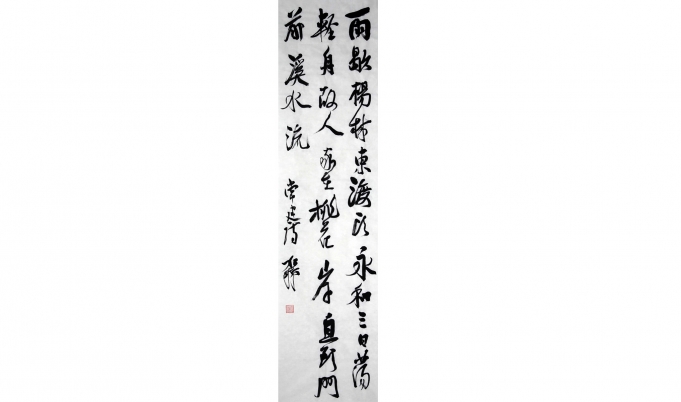 雨歇楊林東渡頭永和三日蕩
輕舟故人家在桃花岸直到門
前溪水流
常建詩